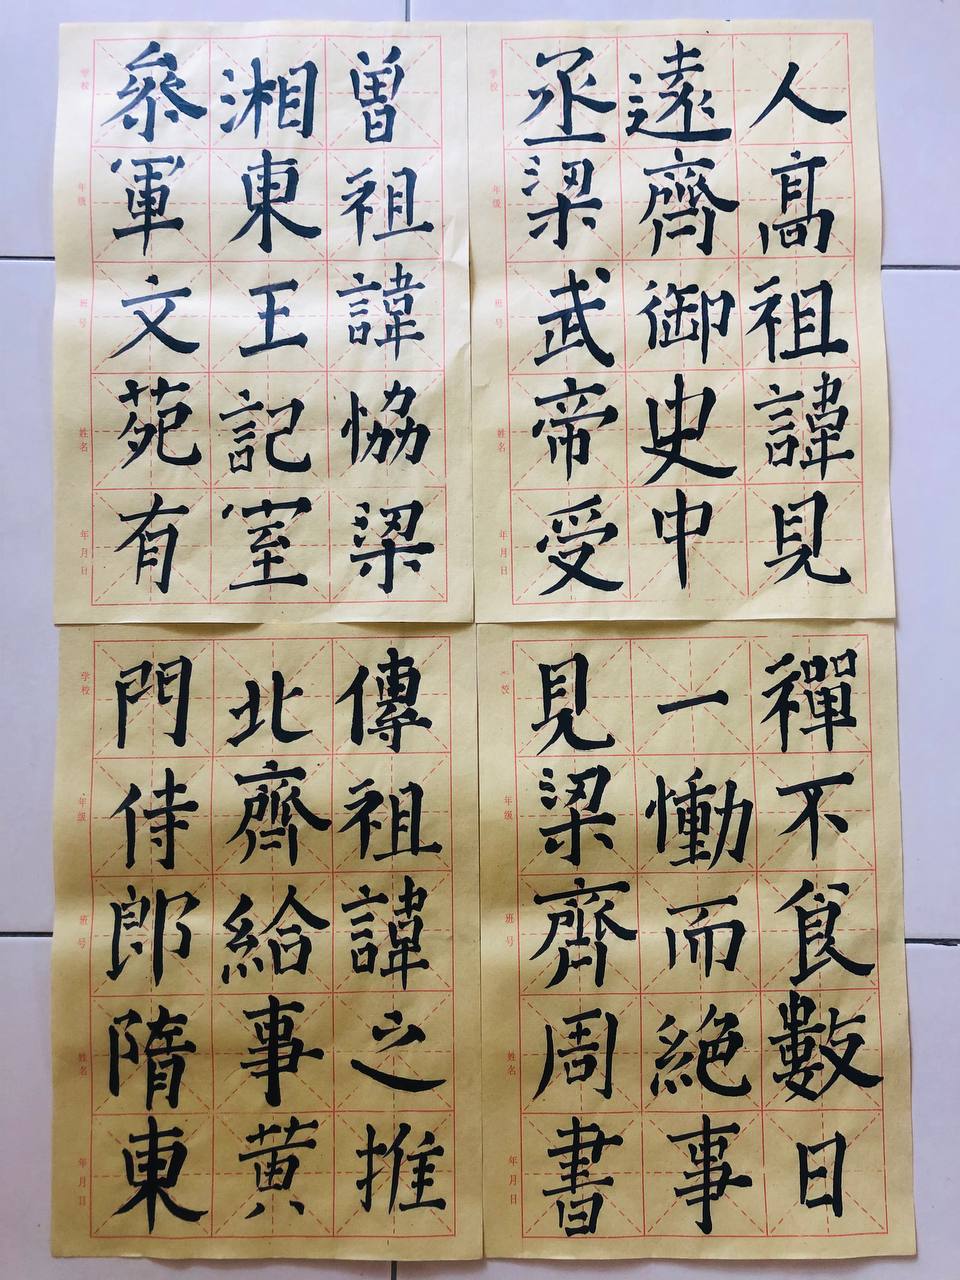 人高祖諱見
遠齊御史中
丞梁武帝受
学校 年级 班号 姓名 年月日
禪不食數日
一慟而絶事
見梁齊周書
校 年级 班号 姓名 年月日
曾祖諱恊梁
湘東王記室
叅軍文苑有
学校 年级 班号 姓名 年月日
傳祖諱之推
北齊給事黃
門侍郎隋東
学校 年级 班号 姓名 年月日